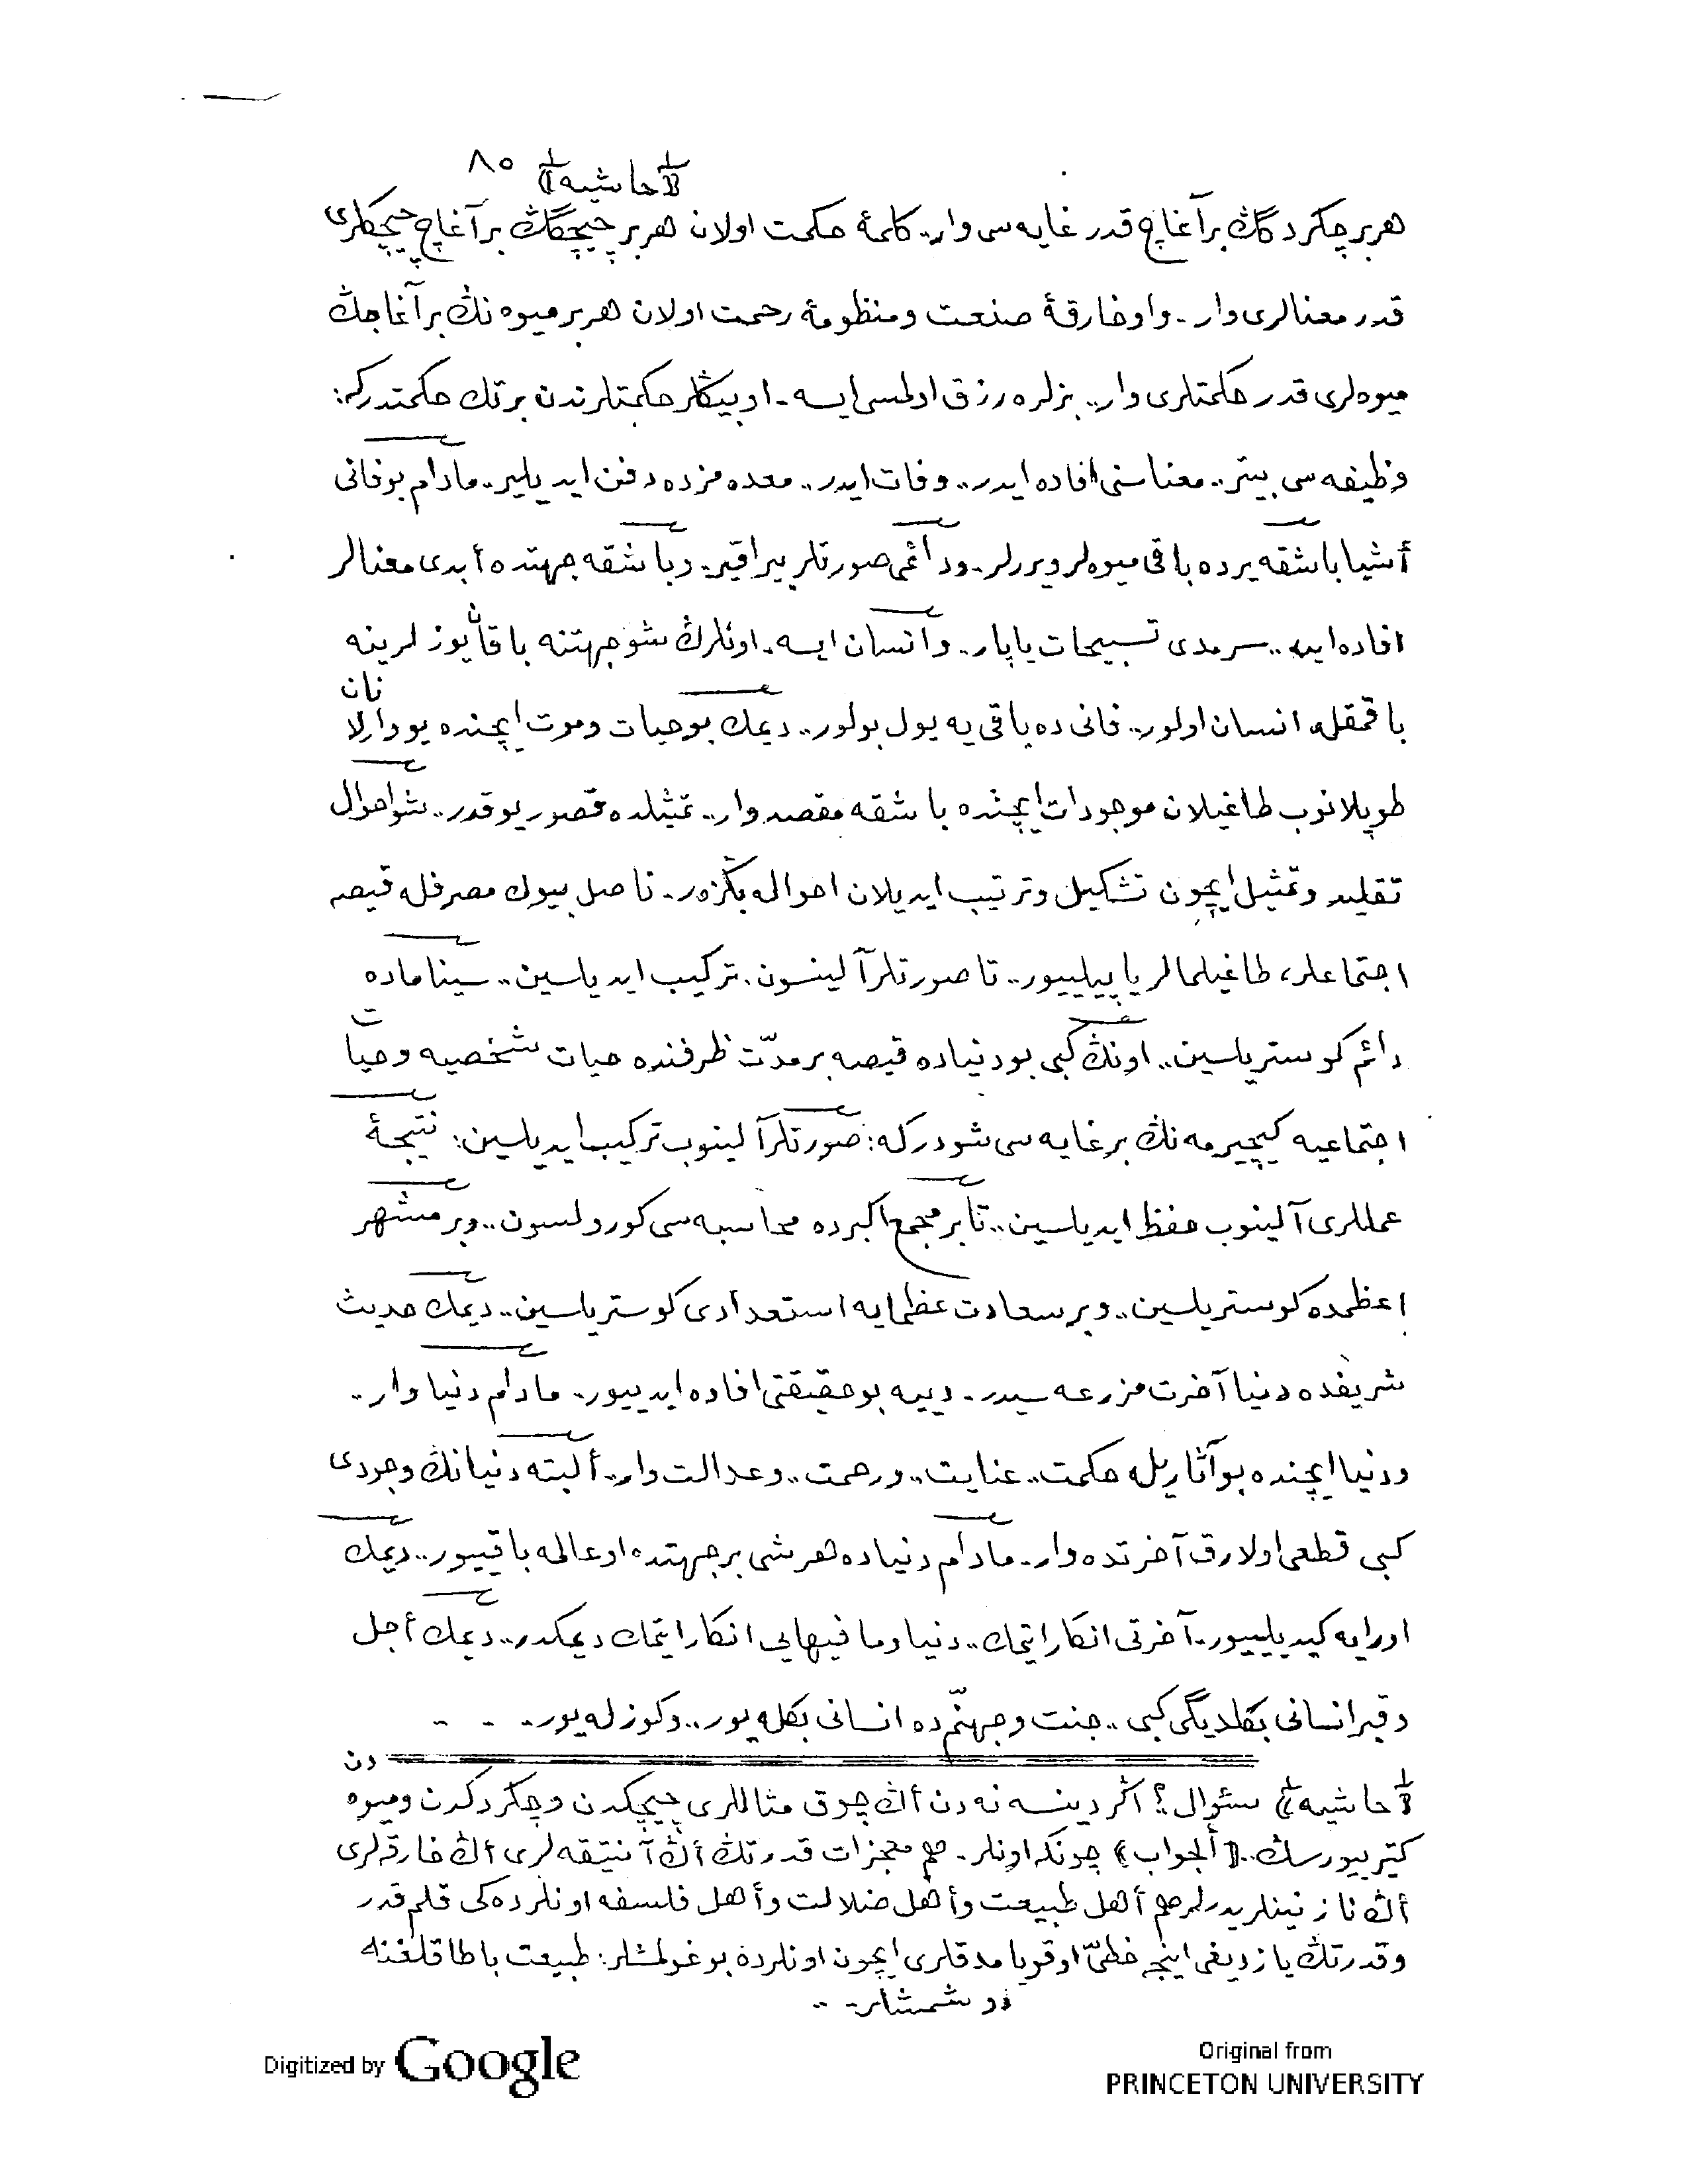 ٨٥
﴿حاشیه﴾
هربر چكردگڭ برآغاچ قدر غایه‌سی وار.. كلمهٔ حكمت اولان هربر چیچگڭ بر آغاچ چیچكلری
قدر معنالری وار. واو خارقهٔ صنعت ومنظومهٔ رحمت اولان هربر میوه نڭ برآغاجڭ
میوه‌لری قدر حكمتلری وار.. بزلره رزق اولمسی ایسه. او بیڭلر حكمتلرندن برتك حكمتدركه:
وظیفه سی بیتر.. معناسنی افاده ایدر.. وفات ایدر.. معده مزده دفن ایدیلیر. مادام بوفانی
أشیا باشقه یرده باقی میوه‌لر ویررلر. ودائمی صورتلر بیراقیر. وباشقه جهتده أبدی معنالر
افاده ایدر.. سرمدی تسبیحات یاپار.. وانسان ایسه. اونلرڭ شو جهتنه باقان یوزلرینه
باقمقله انسان اولور.. فانی ده باقی یه یول بولور.. دیمك بوحیات وموت ایچنده یووارلانان
طوپلانوب طاغیلان موجودات ایچنده باشقه مقصد وار.. تمثیلده قصور یوقدر.. شواحوال
تقلید وتمثیل ایچون تشكیل وترتیب ایدیلان احواله بڭزر. ناصل بیوك مصرفله قیصه
اجتماعلر، طاغیلمالر یاپیلییور.. تا صورتلر آلینسون. تركیب ایدیلسین.. سینماده
دائم كوستریلسین.. اونڭ كبی بو دنیاده قیصه برمدّت ظرفنده حیات شخصیه وحیات
اجتماعیه كیچیرمه نڭ بر غایه سی شودركه: صورتلر آلینوب تركیب ایدیلسین: نتیجهٔ
عمللری آلینوب حفظ ایدیلسین.. تا بر مجمع اكبرده محاسبه سی كورولسون.. وبر مشهر
اعظمده كوستریلسین.. وبر سعادت عظمایه استعدادی كوستریلسین.. دیمك حدیث
شریفده دنیا آخرت مزرعه سیدر. دییه بو حقیقتی افاده ایدییور. مادام دنیا وار..
ودنیا ایچنده بو آثاریله حكمت.. عنایت.. ورحمت.. وعدالت وار.. ألبته دنیانڭ وجودی
كبی قطعی اولارق آخرتده وار. مادام دنیاده هرشی برجهتده اوعالمه باقییور.. دیمك
اورایه كیدیلییور. آخرتی انكار ایتمك.. دنیا وما فیهایی انكار ایتمك دیمكدر.. دیمك أجل
وقبر انسانی بكلدیگی كبی.. جنت وجهنّم ده انسانی بكله‌یور.. وكوزله‌یور.
﴿حاشیه﴾ سئوال؟ اگر دینسه نه دن أڭ چوق مثاللری چیچكدن وچكردكدن ومیوه دن
كتیرییورسڭ..﴿ألجواب﴾ چونكه اونلر. هم معجزات قدرتڭ أڭ آنتیقه‌لری أڭ خارقه‌لری
أڭ نازنینلریدرلر هم أهل طبیعت وأهل ضلالت وأهل فلسفه اونلرده‌كی قلم قدر
وقدرتڭ یازدیغی اینجه خطّی اوقویامدقلری ایچون اونلرده بوغولمشلر: طبیعت باطاقلغنه
دوشمشلر.
Digitized by Google
Original from
PRINCETON UNIVERSITY